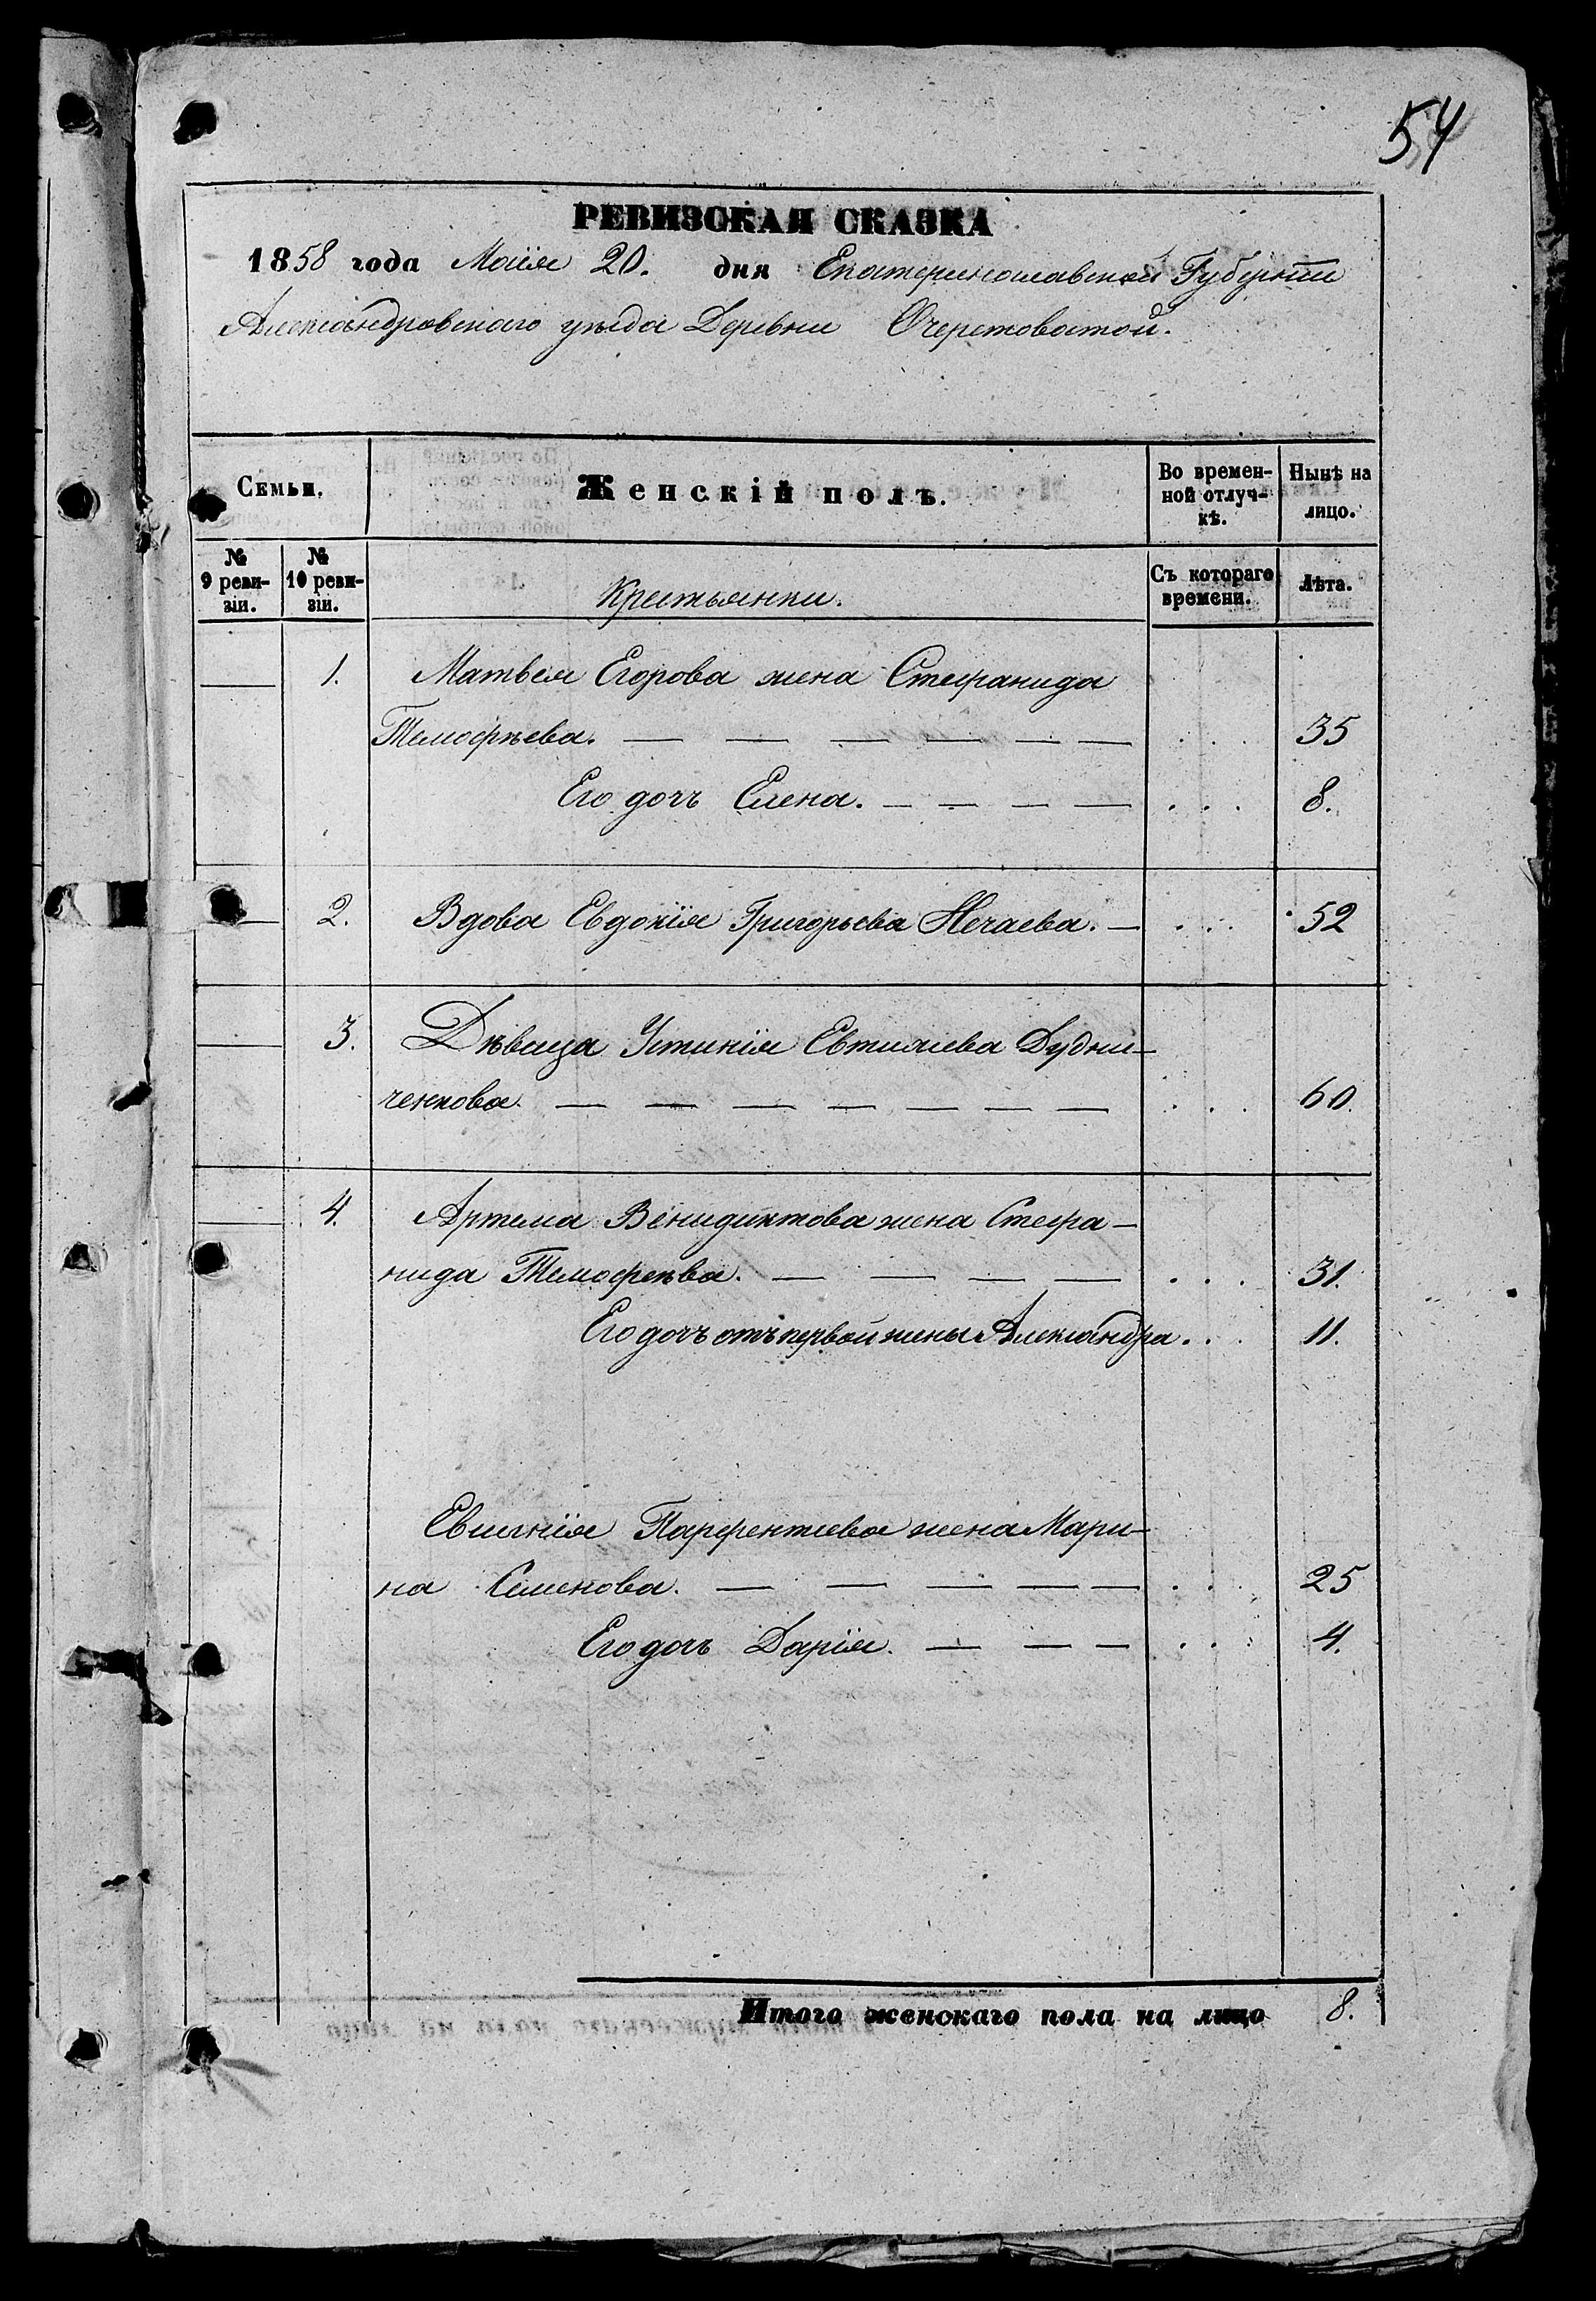 54
РЕВИЗСКАЯ СКАЗКА
1858 года Маія 20. дня Екатеринославской Губерніи
Александровскаго уѣзда Деревни Очеретоватой.
Семьи.
Женскій полъ.
Во времен-
ной отлуч-
кѣ.
Нынѣ на
лицо.
№
9 реви-
зіи.
№
10 реви-
зіи.
Крестьянки.
Съ котораго
времени.
Лѣта.
1. Матвея Егорова жена Стефанида
Тимофѣева. — — — — — — . . . 35
Его дочь Елена. — — — — . . . 8.
2. Вдова Евдокія Григорьева Нечаева. — . . . 52
3. Дѣвица Устинія Евтихіева Дудни-
ченкова. — — — — — — — . . . 60.
4. Артема Венидиктова жена Стефа-
нида Тимофеѣва. — — — — . . . 31.
Его дочь отъ первой жены Александра. . . 11.
Парфентиева жена Мари-
на Семенова. — — — — — . . . 25
Его дочь Дарія. — — — . . . 4.
Итого женскаго пола на лицо 8.